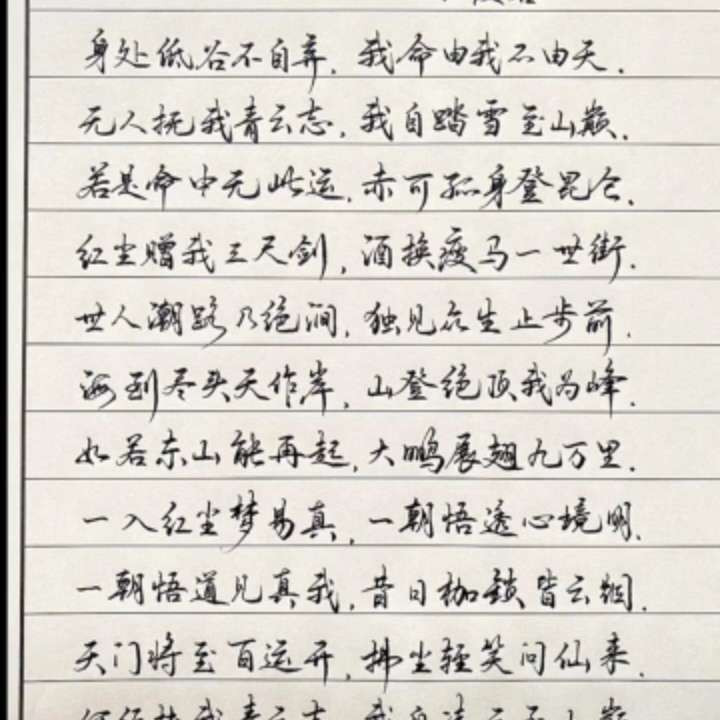 身处低谷不自弃，我命由我不由天．
无人抚我青云志，我自踏雪至山巅．
若是命中无此运，赤可孤身登昆仑．
红尘赠我三尺剑，酒换瘦马一世街．
世人潮路乃绝涧，独见众生止步前．
海到尽头天作岸，山登绝顶我为峰．
如若东山能再起，大鹏展翅九万里．
一入红尘梦易真，一朝悟透心境明．
一朝悟道见真我，昔日枷锁皆云烟．
天门将至百运开，拂尘轻笑问仙来．
我青云志，我自